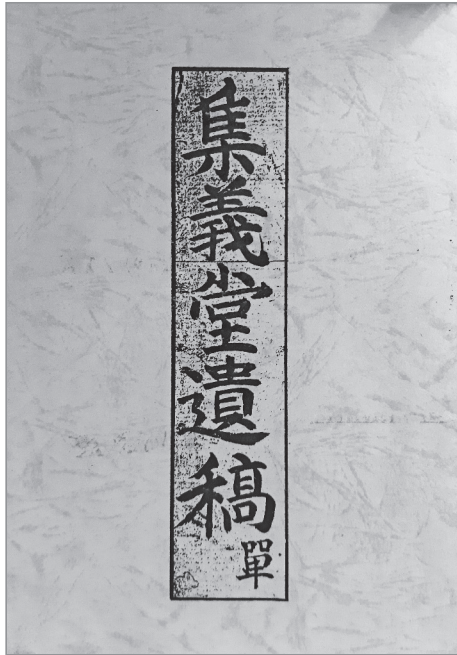 集義堂遺稿單